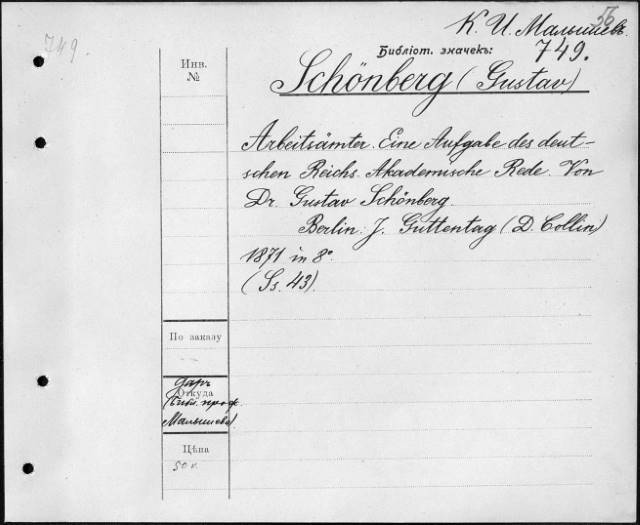 749.
56
К. И. Малышевъ.
Библіот. значекъ: 749.
Инв.
№
Schönberg (Gustav)
Arbeitsämter. Eine Aufgabe des deut-
schen Reichs. Akademische Rede. Von
Dr. Gustav Schönberg.
Berlin. J. Guttentag (D. Collin)
1871 in 8°
(Ss. 43).
По заказу
Даръ
Откуда
(Библ. проф.
Малышева)
Цѣна
50 к.